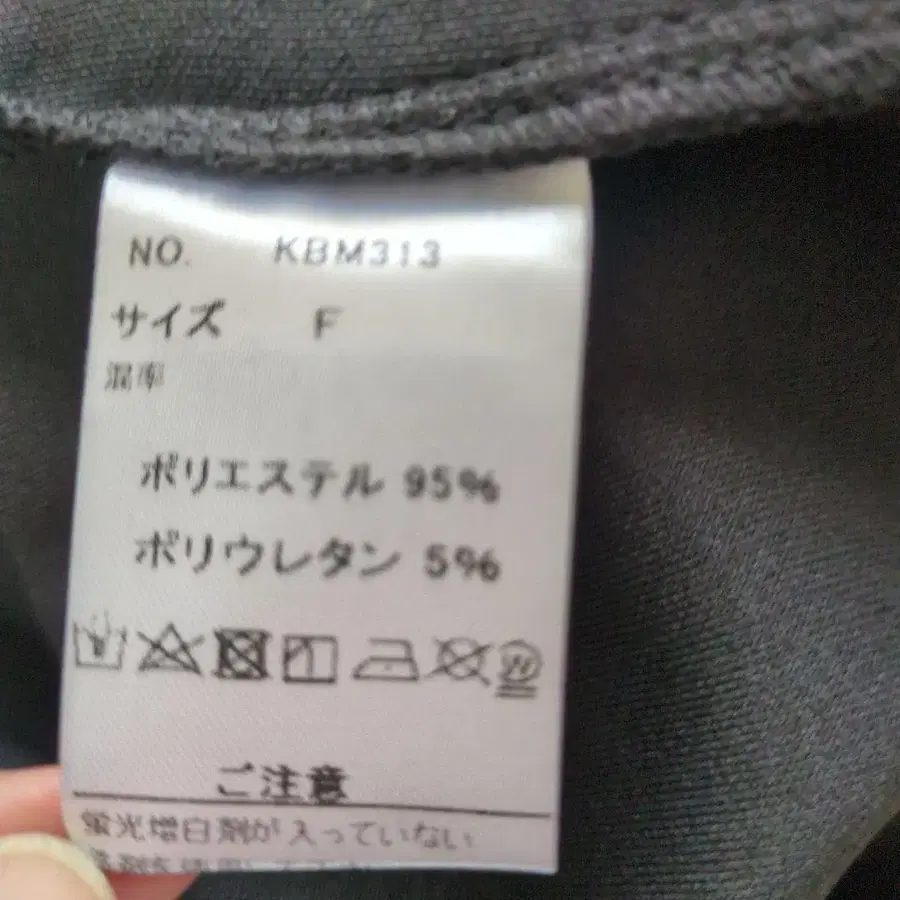 NO. KBM313
サイズ F
混率
ポリエステル 95%
ポリウレタン 5%
ご注意
蛍光増白剤が入っていない